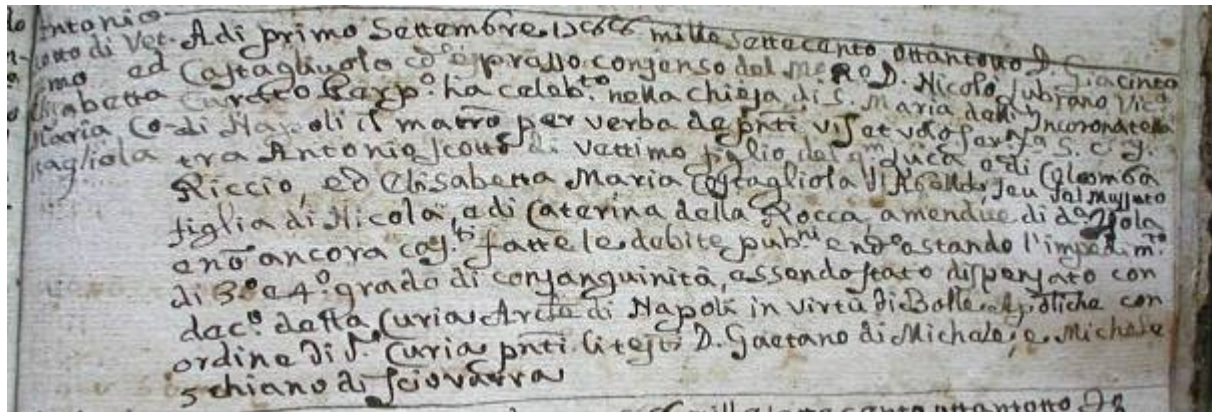 Antonio
Scotto di Vet-
timo ed
Elisabetta
Maria Co-
stagliola
A di primo Settembre 1788 mille settecento ottantotto D. Giacinto
Costagliuolo cõ espresso consenso del D. Nicolò Lubrano Vic.
Curato ha celeb.to nella chiesa di S. Maria dell' Incoronatella
di Napoli il matro per verba de pnti vis et volo
tra Antonio Scotto di Vettimo figlio del qm Luca e di Colomba
Riccio, ed Elisabetta Maria Costagliola di seu
figlia di Nicola, e di Caterina della Rocca, amendue di da Isola
e nõ ancora fatte le debite pub.ni e nõ ostando l'impedim.to
di 3º e 4º grado di consanguinità, essendo stato dispensato con
dec.º della Curia Arciv di Napoli in virtù di Bolle Apostiche con
ordine di d. Curia pnti li testi D. Gaetano di Michele, e Michele
Schiano di Sciovarra
mille settecento ottantotto D.